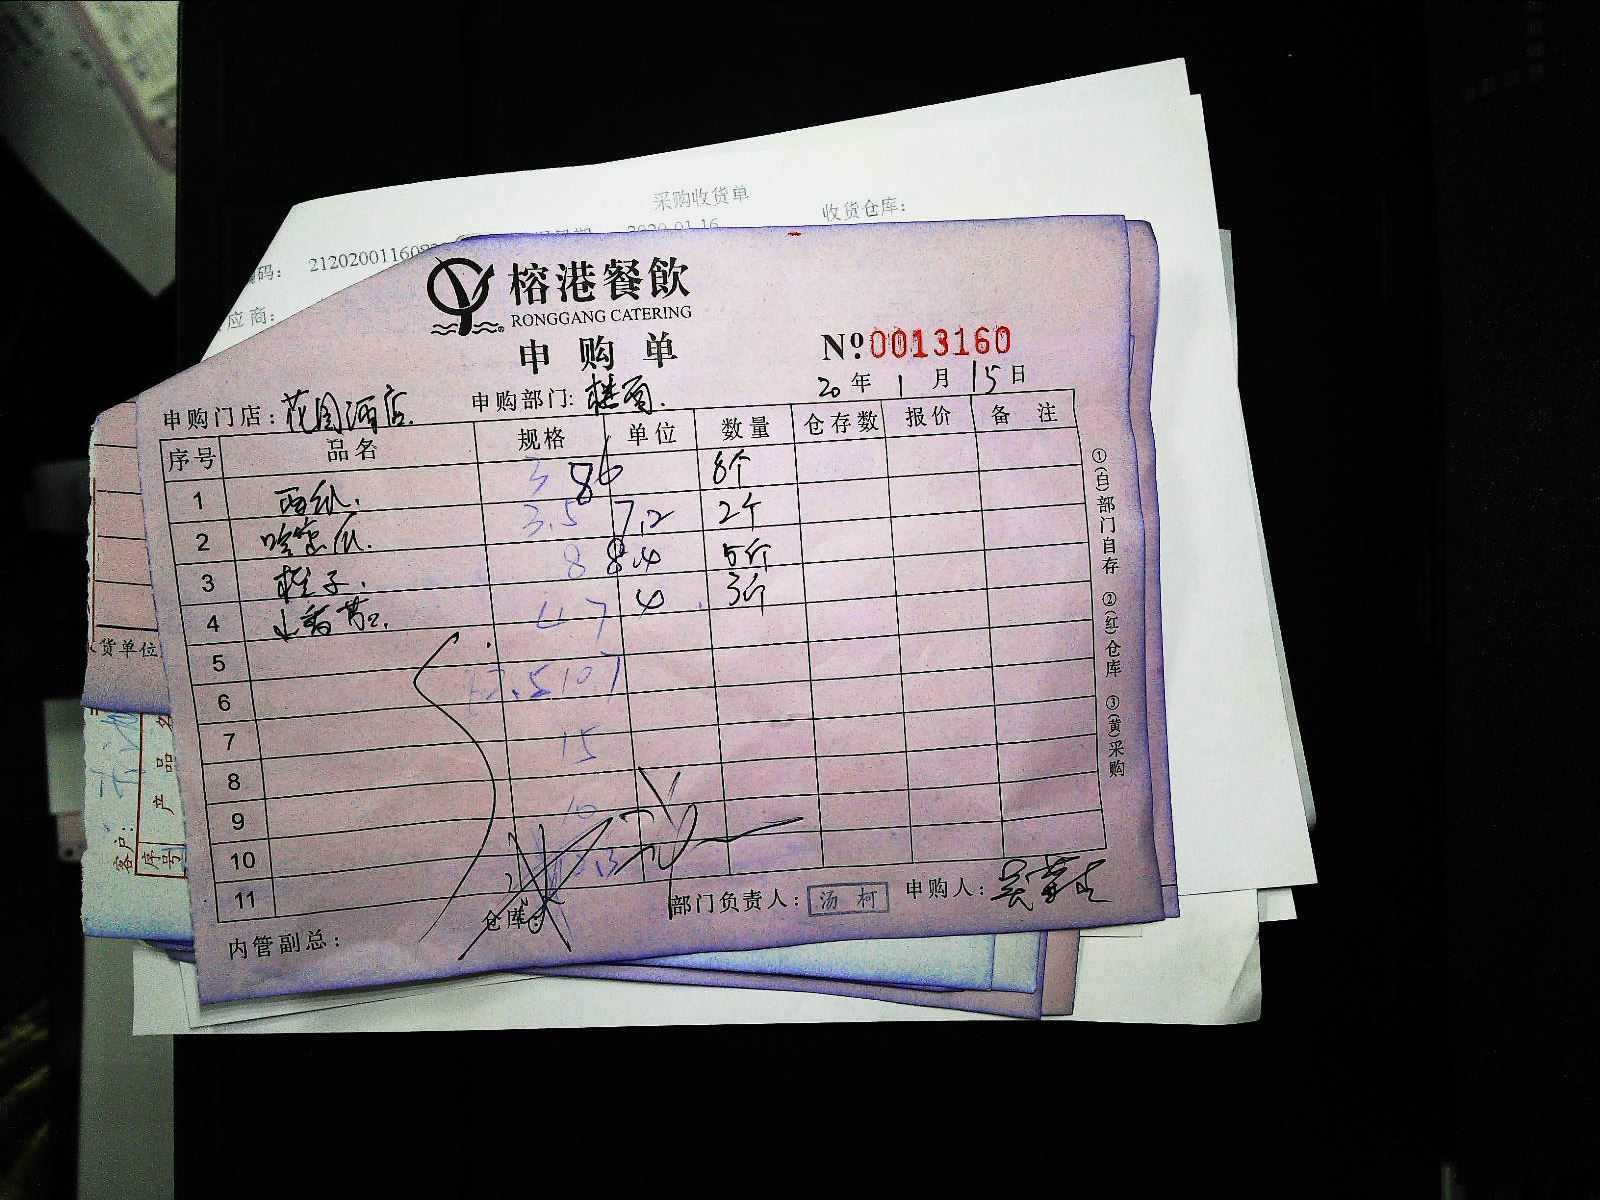 采购收货单
收货仓库：
码： 21202001160
2020-01-16
应商：
榕港餐飲
RONGGANG CATERING
申购单
№ 0013160
20 年 1 月 15 日
申购门店：花园酒店.
申购部门：楼面.
序号 品名 规格 单位 数量 仓存数 报价 备注
1 西瓜. 3 86 8个
2 哈密瓜. 3.5 7.2 2个
3 桔子. 8 8.4 5斤
4 小番茄. 4 7 4 3斤
5
6
7 15
8
9 10
10
11
①(白)部门自存 ②(红)仓库 ③(黄)采购
仓库：
部门负责人：汤柯
申购人：
内管副总：
货单位
产品名
客户：
序号